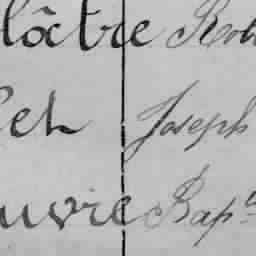 lôctre Rob
et Joseph
uvrie Bapt